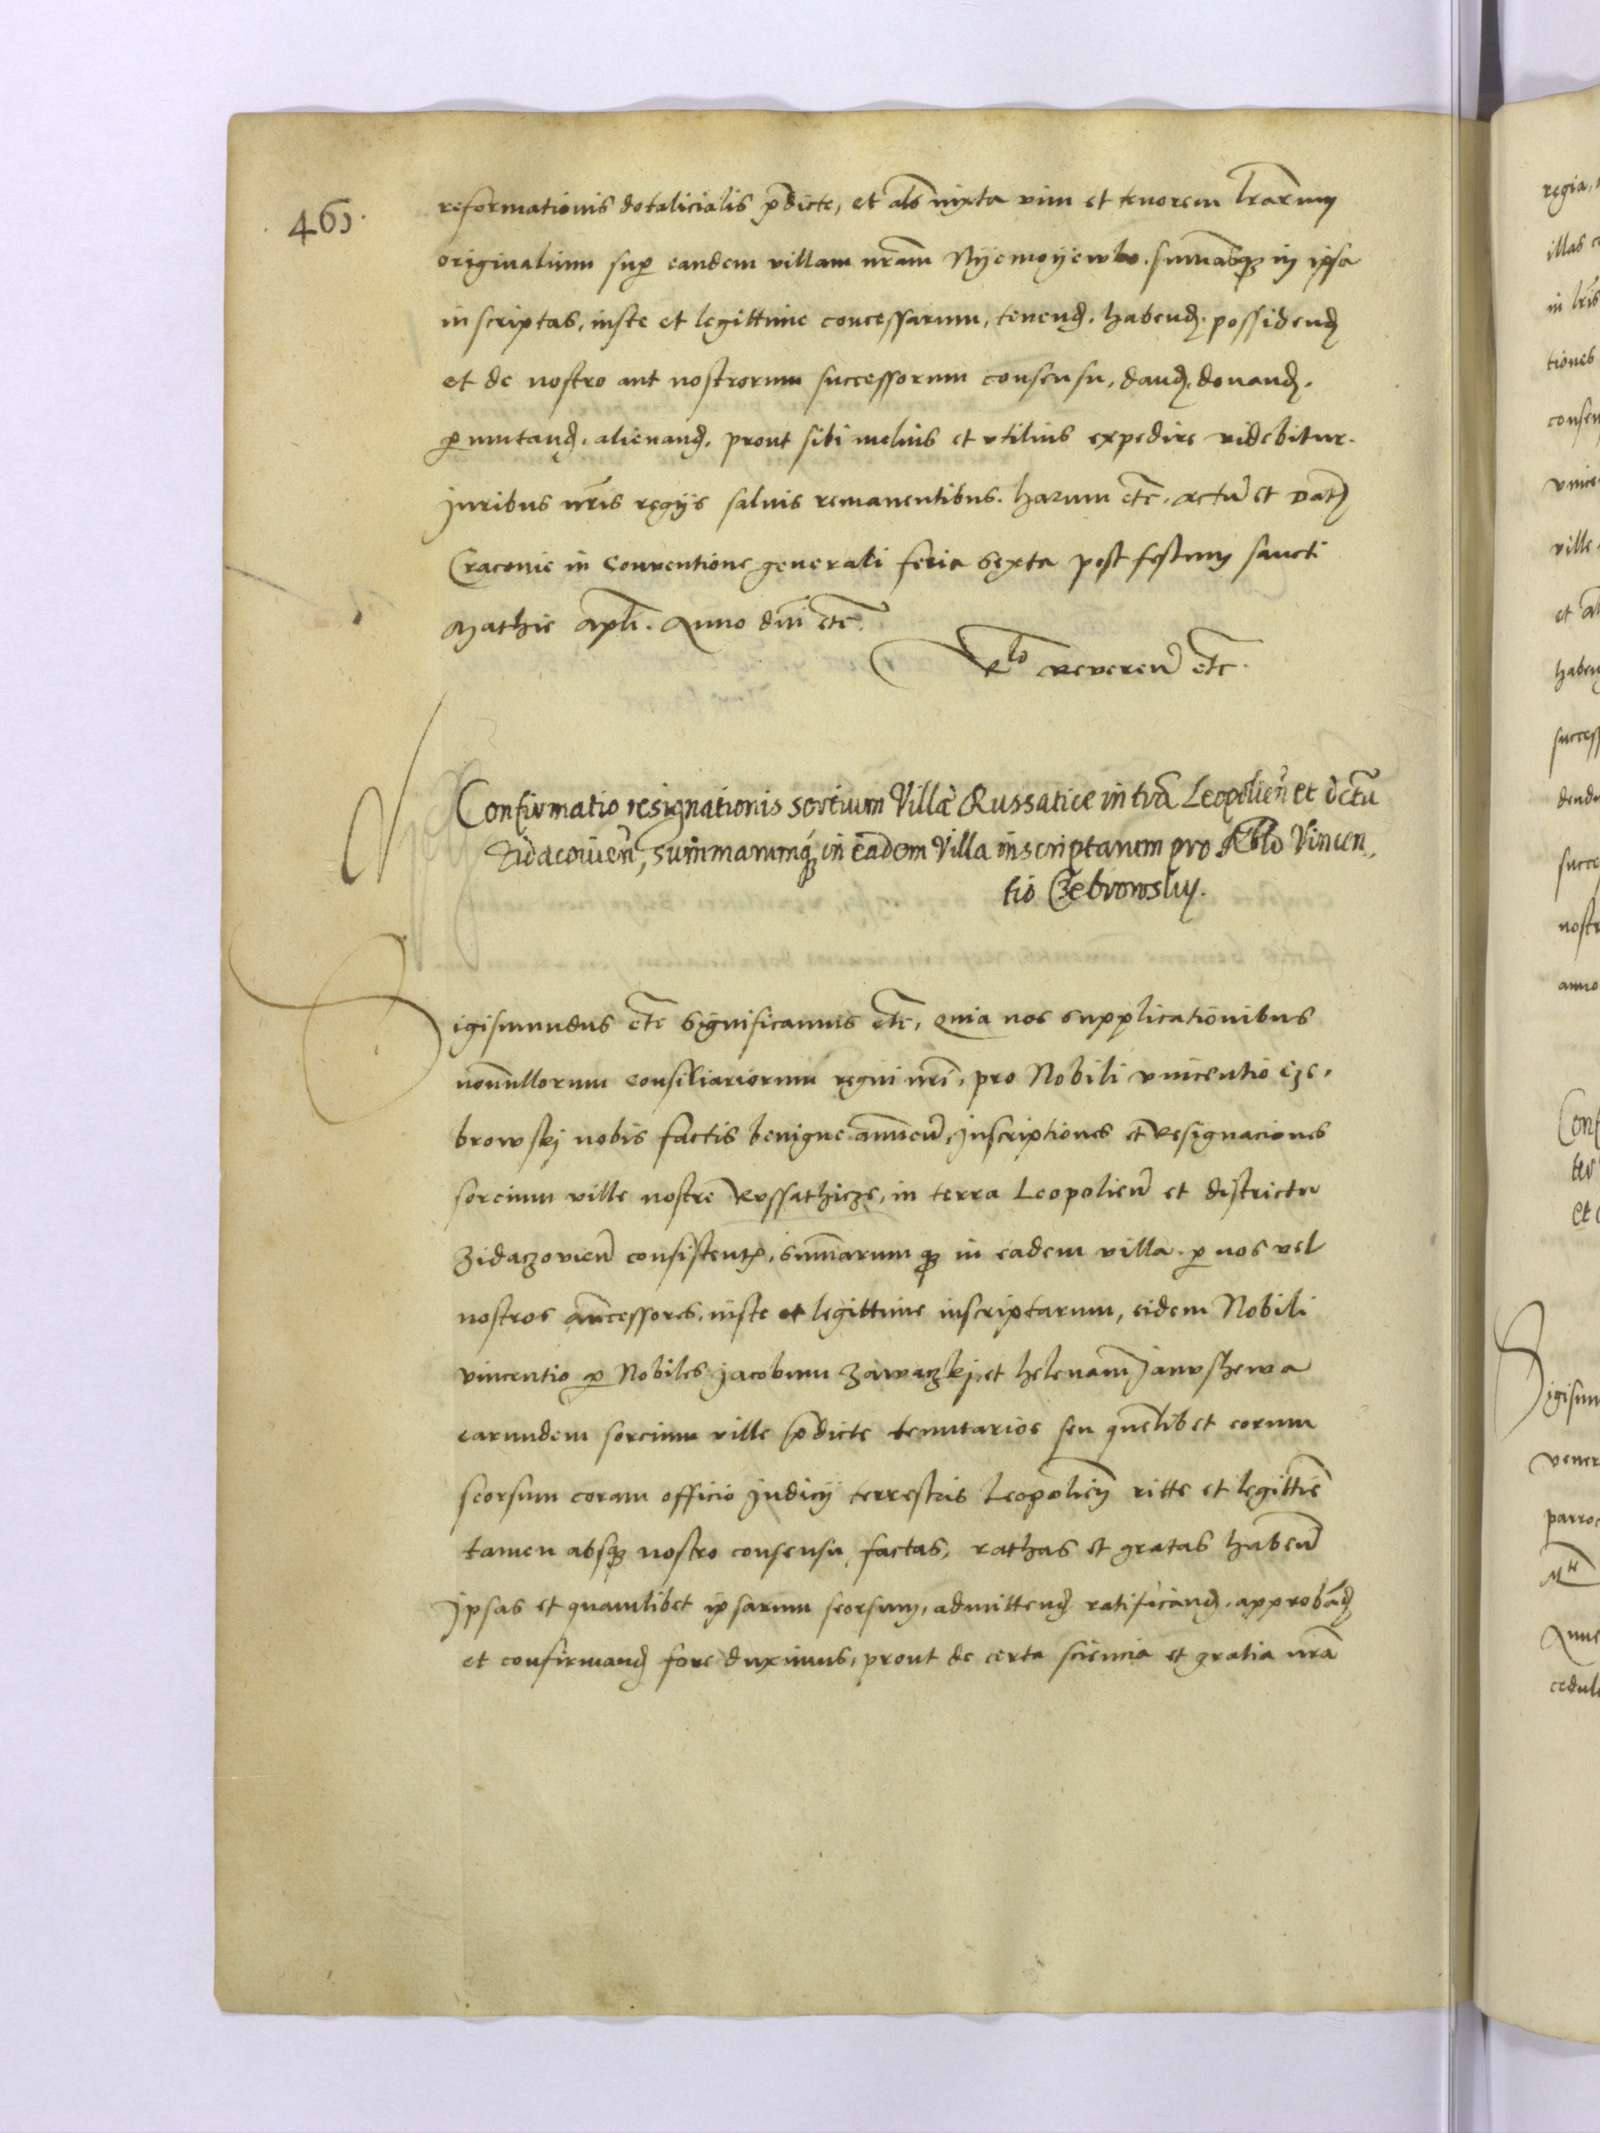 461.
reformationis dotalicialis p̄dicte, et als̄ iuxta vim et tenorem lr̄arum
originalium sup̱ eandem villam nr̄am Nyemoyewko. sum̄asqꝫ in ipsa
inscriptas, iuste et legittime concessarum, tenend̄. habend̄. possidend̄
et de nostro aut nostrorum successorum consensu, dand̄, donand̄.
p̱mutand̄, alienand̄, prout sibi melius et vtilius expedire videbitur.
Juribus nr̄is regijs saluis remanentibus. harum etc̄. Actū et Dat̄
Cracouie in Conuentione generali feria sexta post festum sancti
Mathie Apl̄i. Anno dn̄i etc̄.
Rlō Reueren̄ etc̄.
Confirmatio resignationis sortium Villæ Russatice in tr̄a Leopolien̄ et dc̄tu
Zidacouien̄, Summarumqꝫ in eadem Villa inscriptarum pro Nbl̄o Vincen-
tio Czebrowsky.
Sigismundus etc̄ Significamus etc̄, Quia nos supplicationibus
nonnullorum consiliariorum regni nr̄i, pro Nobili Vincentio Cze-
browskj nobis factis benigne annuen̄, Inscriptiones et Resignaciones
sorcium ville nostre Russathicze, in terra Leopolien̄ et districtu
Zidaczouien̄ consistent̄, sum̄arum qꝫ in eadem villa p̱ nos vel
nostros an̄cessores, iuste et legittime inscriptarum, eidem Nobili
Vincentio p̱ Nobiles Jacobum Zawaczkj, et helenam Janushewa
earundem sorcium ville p̄dicte tenutarios seu quēlibet eorum
seorsum coram officio Judicij terrestris Leopolien̄ ritte et legittīe
tamen absqꝫ nostro consensu factas, rathas et gratas haben̄
Ipsas et quamlibet ipsarum seorsum, admittend̄ ratificand̄, approband̄
et confirmand̄ fore duximus, prout de certa sciencia et gratia nr̄a